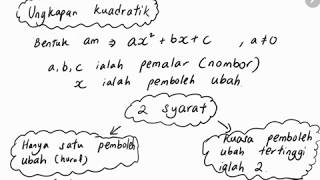 Ungkapan kuadratik
Bentuk am ⇒ ax² + bx + c , a ≠ 0
a, b, c ialah pemalar (nombor)
x ialah pemboleh ubah
2 syarat
Hanya satu pemboleh
ubah (huruf)
Kuasa pemboleh
ubah tertinggi
ialah 2